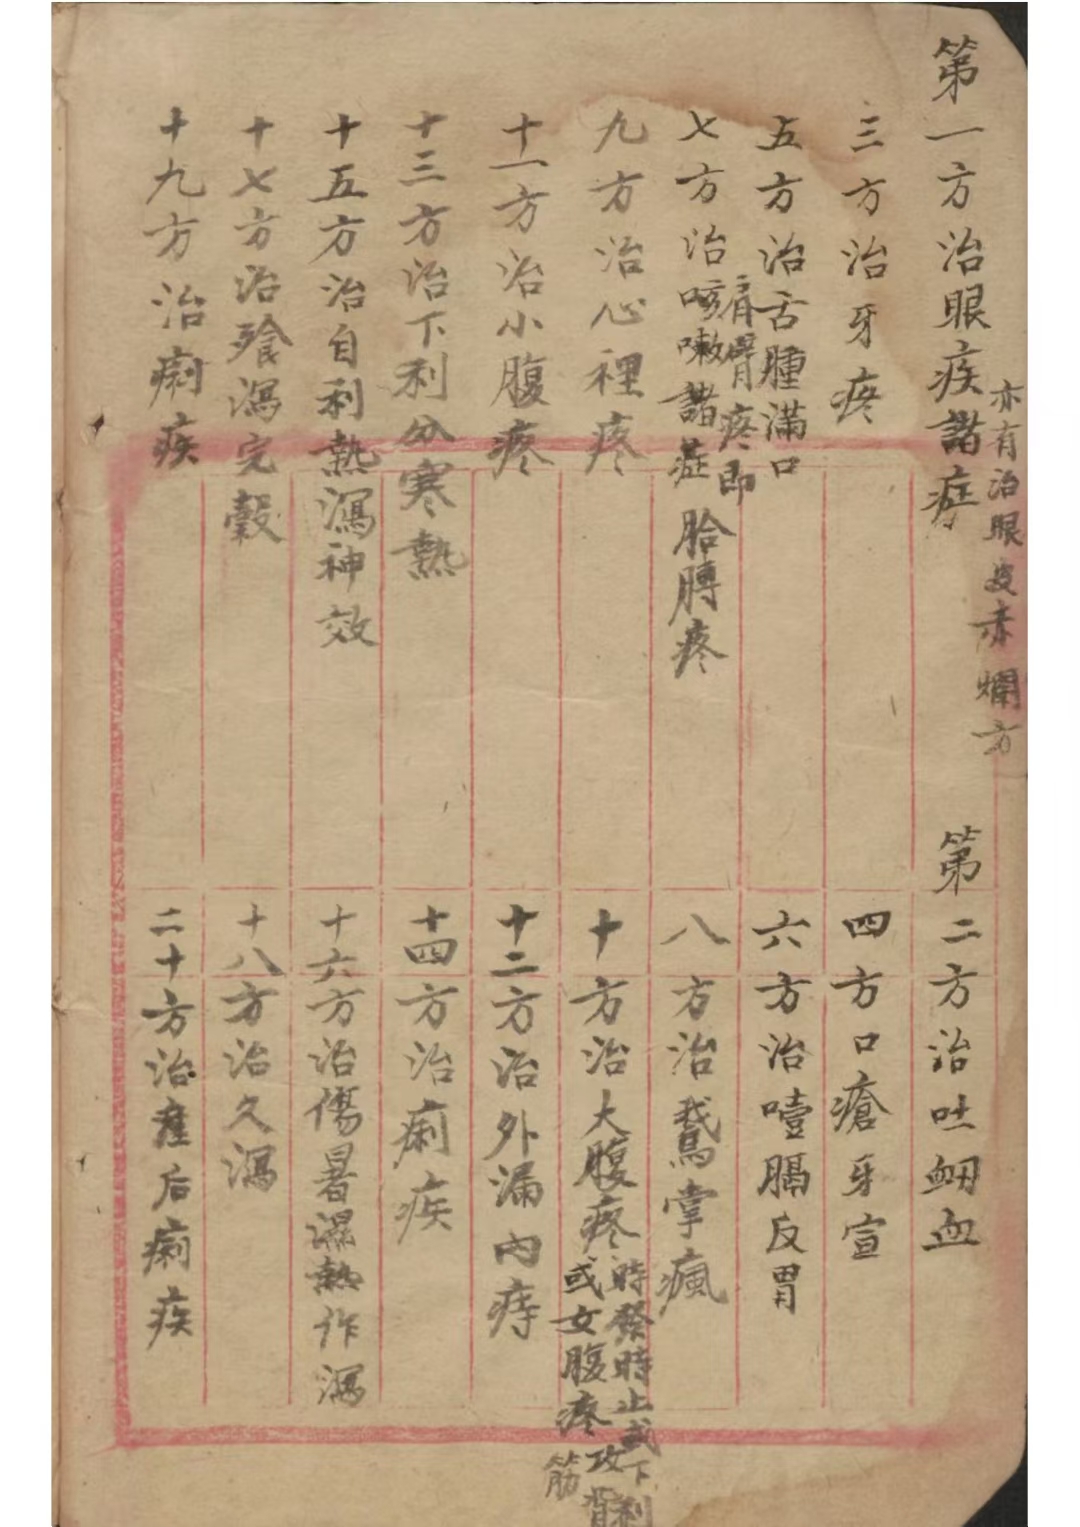 第一方治眼疾諸症
亦有治眼皮赤爛方
第二方治吐衂血
三方治牙疼
四方口瘡牙宣
五方治舌腫滿口
六方治噎膈反胃
七方治咳嗽諸症
肩臂疼即
胎膊疼
八方治鵞掌瘋
九方治心裡疼
十方治大腹疼
時發時止或下利
或女腹疼攻背
筋
十一方治小腹疼
十二方治外漏内痔
十三方治下利分寒熱
十四方治痢疾
十五方治自利熱瀉神效
十六方治傷暑濕熱作瀉
十七方治飱瀉完穀
十八方治久瀉
十九方治痢疾
二十方治產后痢疾